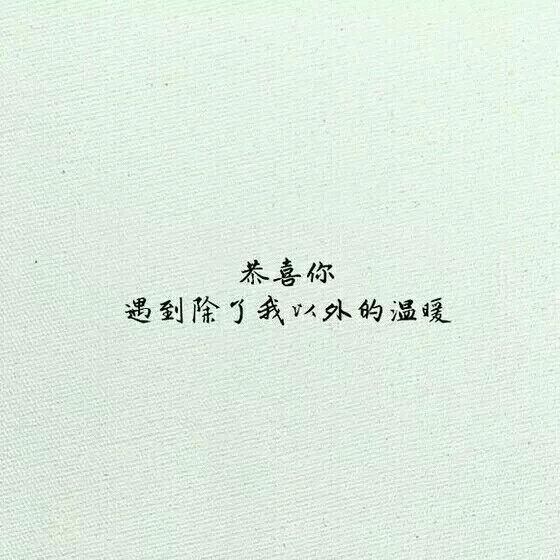 恭喜你
遇到除了我以外的温暖